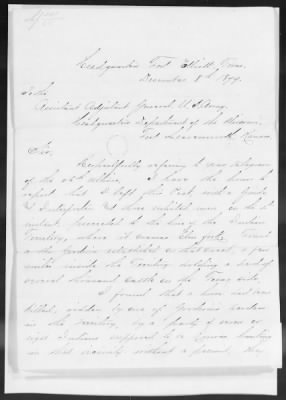 Headquarters Fort Elliott, Texas.
December 8th 1879.
To the
Assistant Adjutant General U.S. Army.
Headquarters Department of the Missouri.
Fort Leavenworth, Kansas.
Sir,
Respectfully referring to your telegram
of the 26th ultimo, I have the honor to
report that I left this Post with a Guide
& Interpreter & three enlisted men on the
instant, proceeded to the line of the Indian
Territory, where it crosses
a few
miles inside the Territory holding a herd of
several thousand cattle on the Texas side.
I found that a horse had been
killed, ridden by one of herders
in the Territory, by a party of seven or
eight Indians supposed to be hunting
in that vicinity without a permit, they